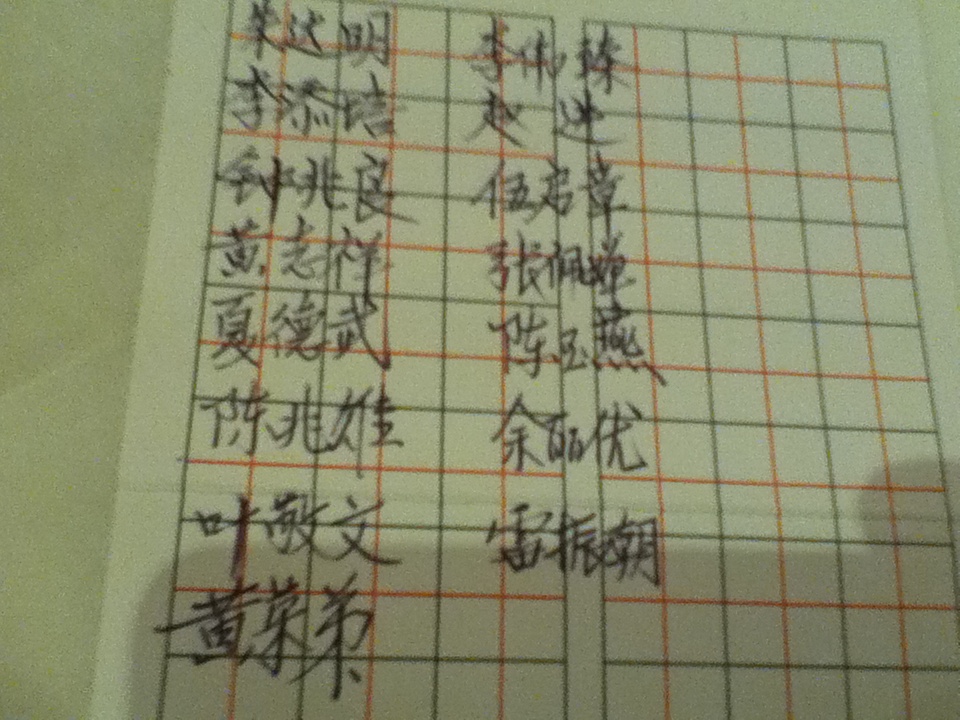 朱达明 李伟栋
李添培 赵进
钟兆良 伍启章
黄志祥 张佩婵
夏德武 陈玉燕
陈兆雄 余丽优
叶敬文 雷振潮
黄荣弟